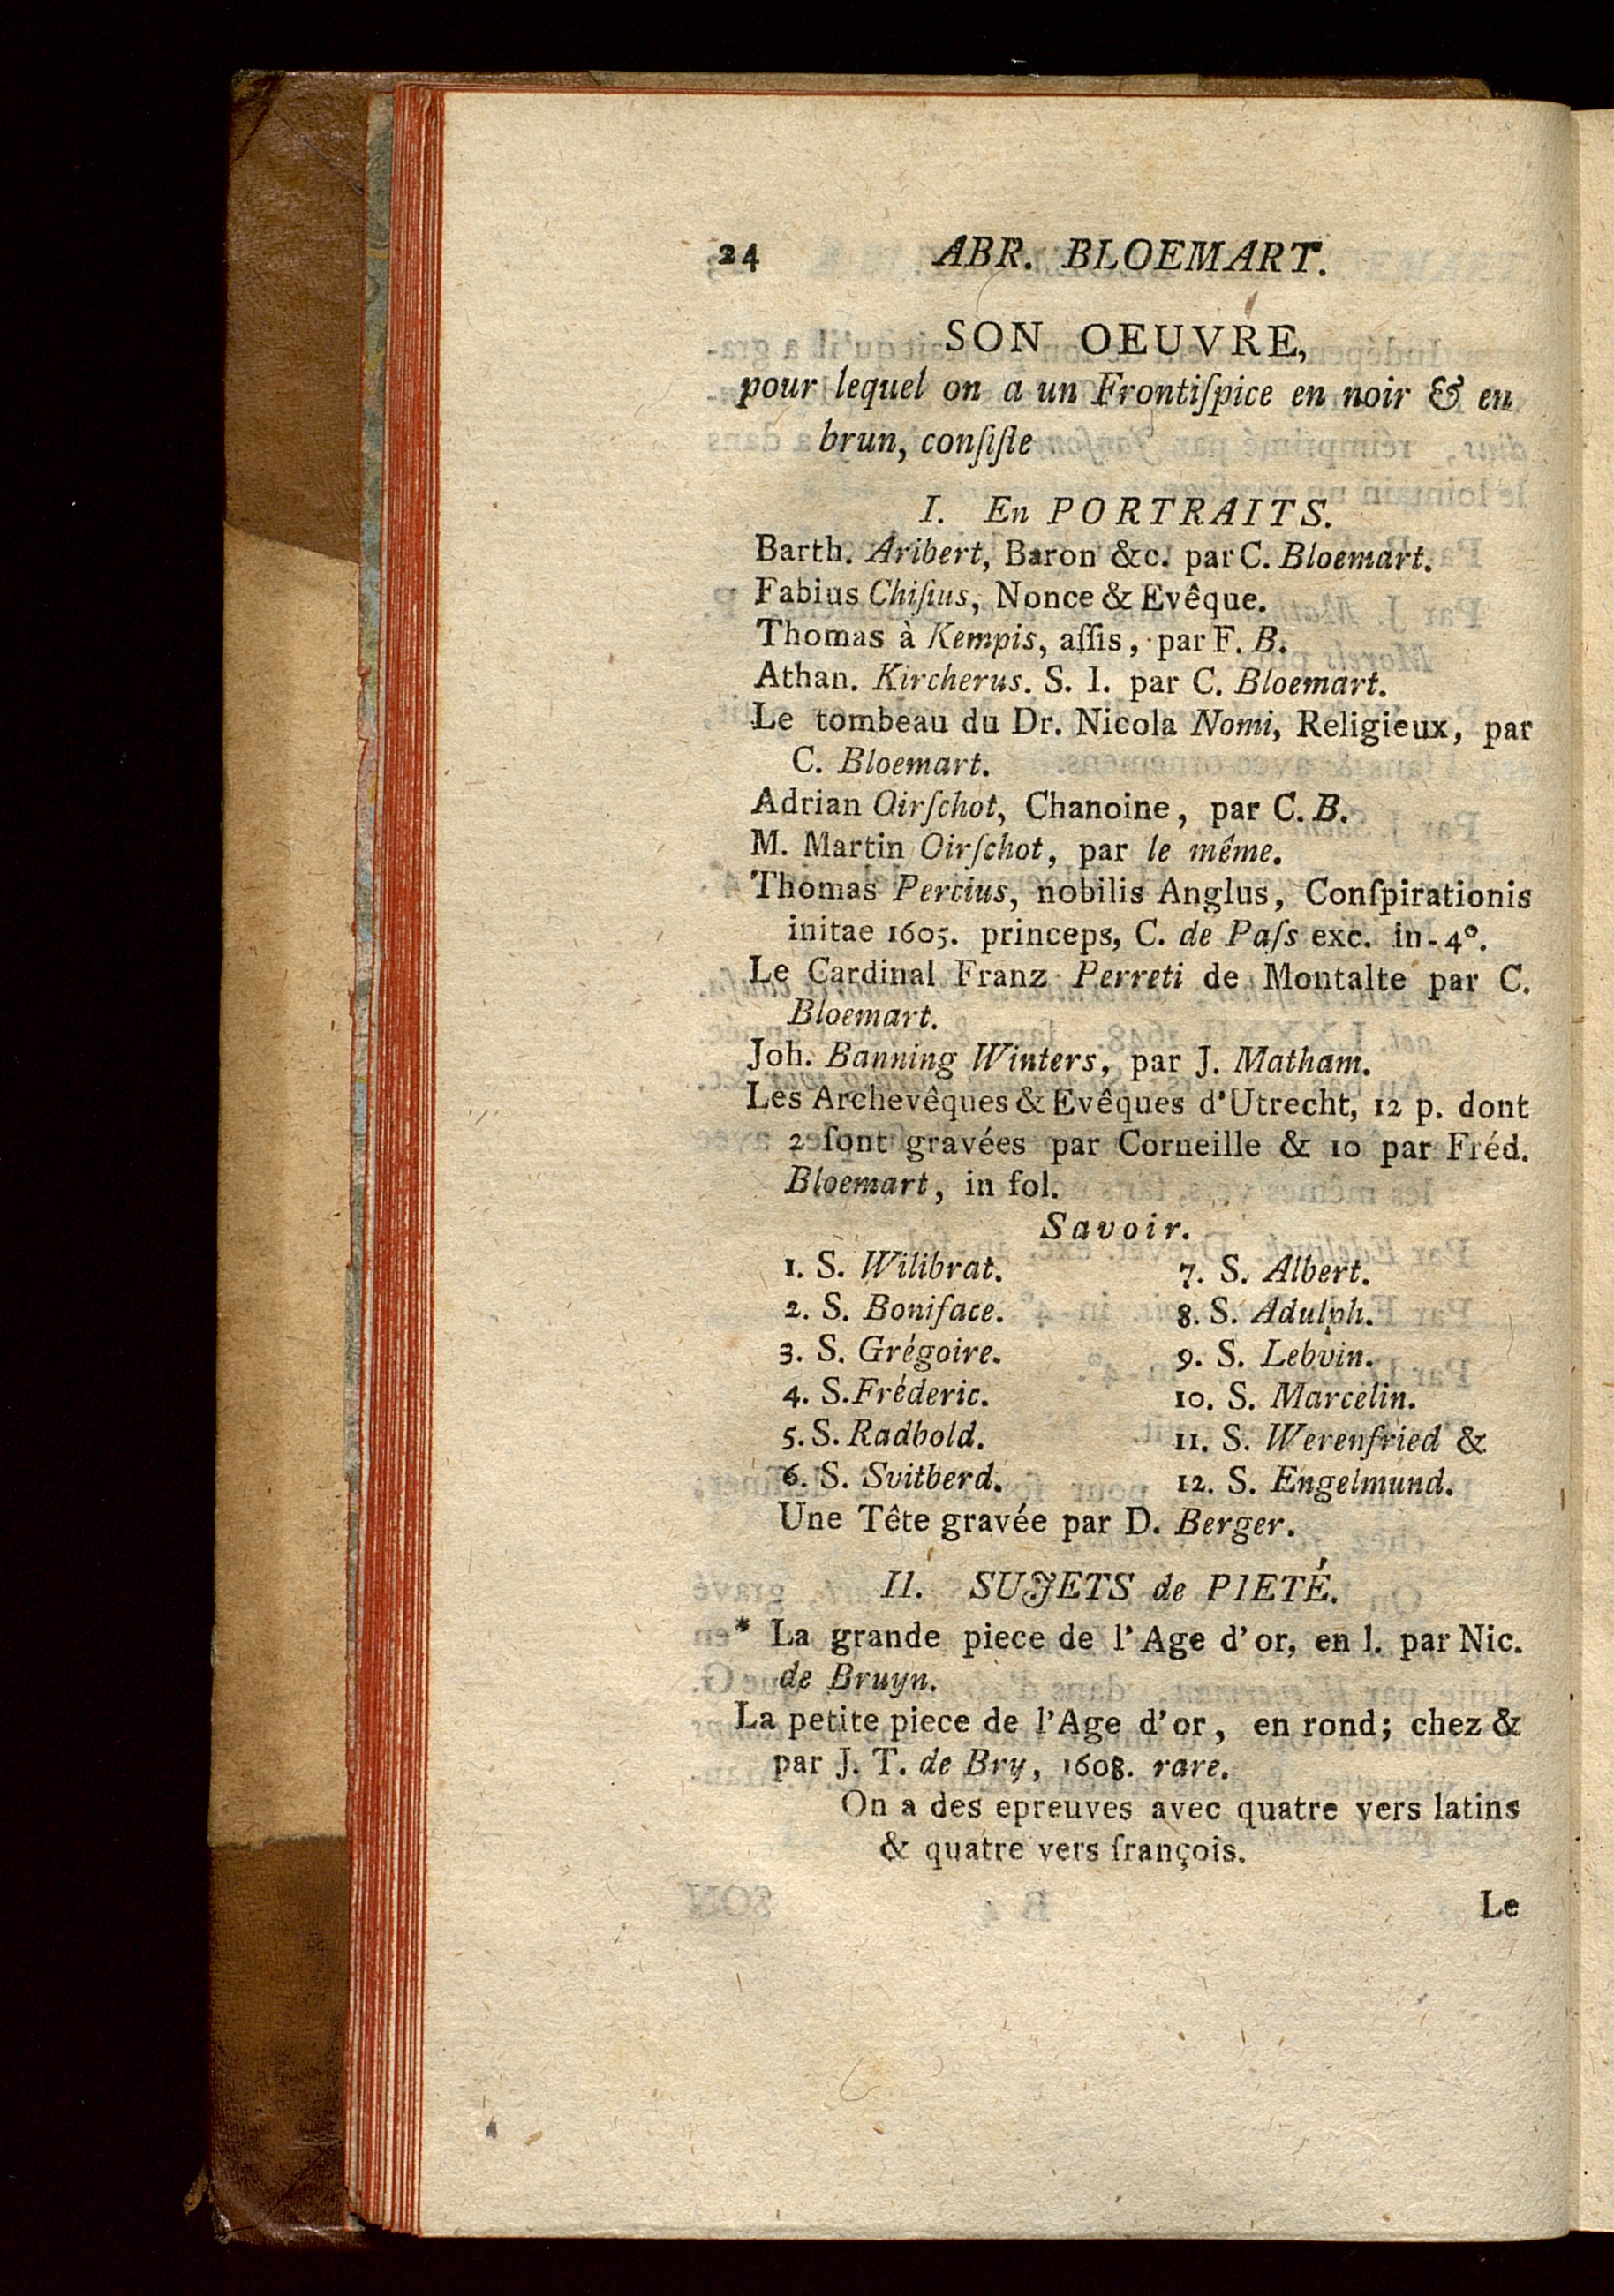 24 ABR. BLOEMART.
SON OEUVRE,
pour lequel on a un Frontiſpice en noir & en
brun, conſiſte
I. En PORTRAITS.
Barth. Aribert, Baron &c. par C. Bloemart.
Fabius Chiſius, Nonce & Evêque.
Thomas à Kempis, aſſis, par F. B.
Athan. Kircherus. S. I. par C. Bloemart.
Le tombeau du Dr. Nicola Nomi, Religieux, par
C. Bloemart.
Adrian Oirſchot, Chanoine, par C. B.
M. Martin Oirſchot, par le même.
Thomas Percius, nobilis Anglus, Conſpirationis
initae 1605. princeps, C. de Paſs exc. in-4°.
Le Cardinal Franz Perreti de Montalte par C.
Bloemart.
Joh. Banning Winters, par J. Matham.
Les Archevêques & Evêques d'Utrecht, 12 p. dont
2 ſont gravées par Corneille & 10 par Fréd.
Bloemart, in fol.
Savoir.
1. S. Wilibrat. 7. S. Albert.
2. S. Boniface. 8. S. Adulph.
3. S. Grégoire. 9. S. Lebvin.
4. S. Fréderic. 10. S. Marcelin.
5. S. Radbold. 11. S. Werenfried &
6. S. Svitberd. 12. S. Engelmund.
Une Tête gravée par D. Berger.
II. SUJETS de PIETÉ.
* La grande piece de l'Age d'or, en l. par Nic.
de Bruyn.
La petite piece de l'Age d'or, en rond; chez &
par J. T. de Bry, 1608. rare.
On a des epreuves avec quatre vers latins
& quatre vers françois.
Le